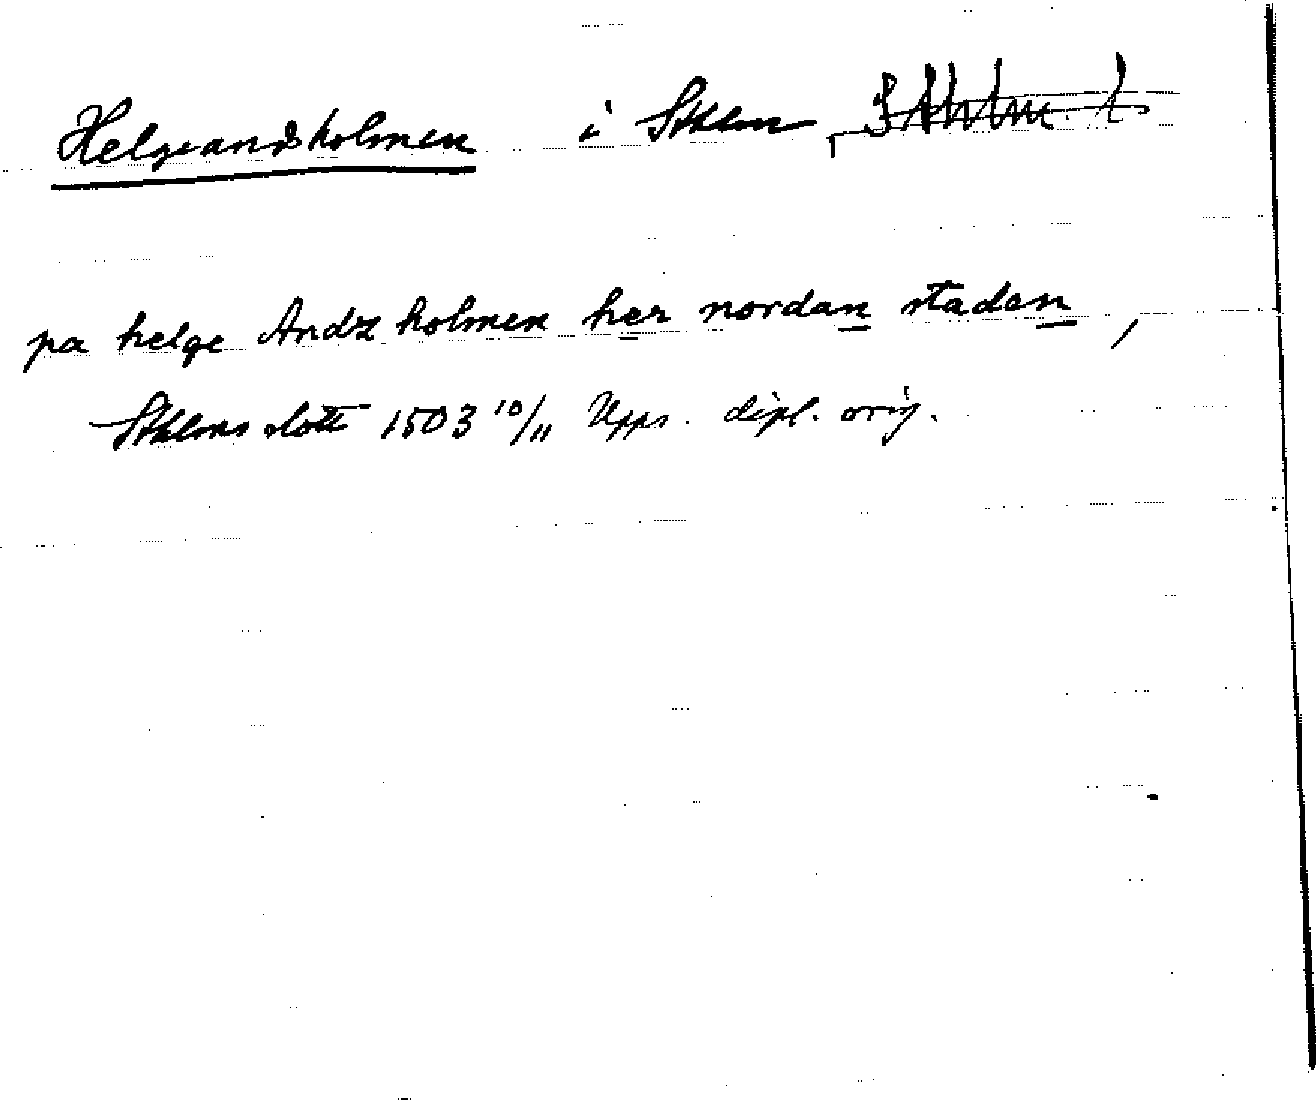 Helgeandsholmen i Sthlm, Stholm l
pa helge Andz holmen her nordan staden,
Sthlms slott 1503 10/11 Upps. dipl. orig.